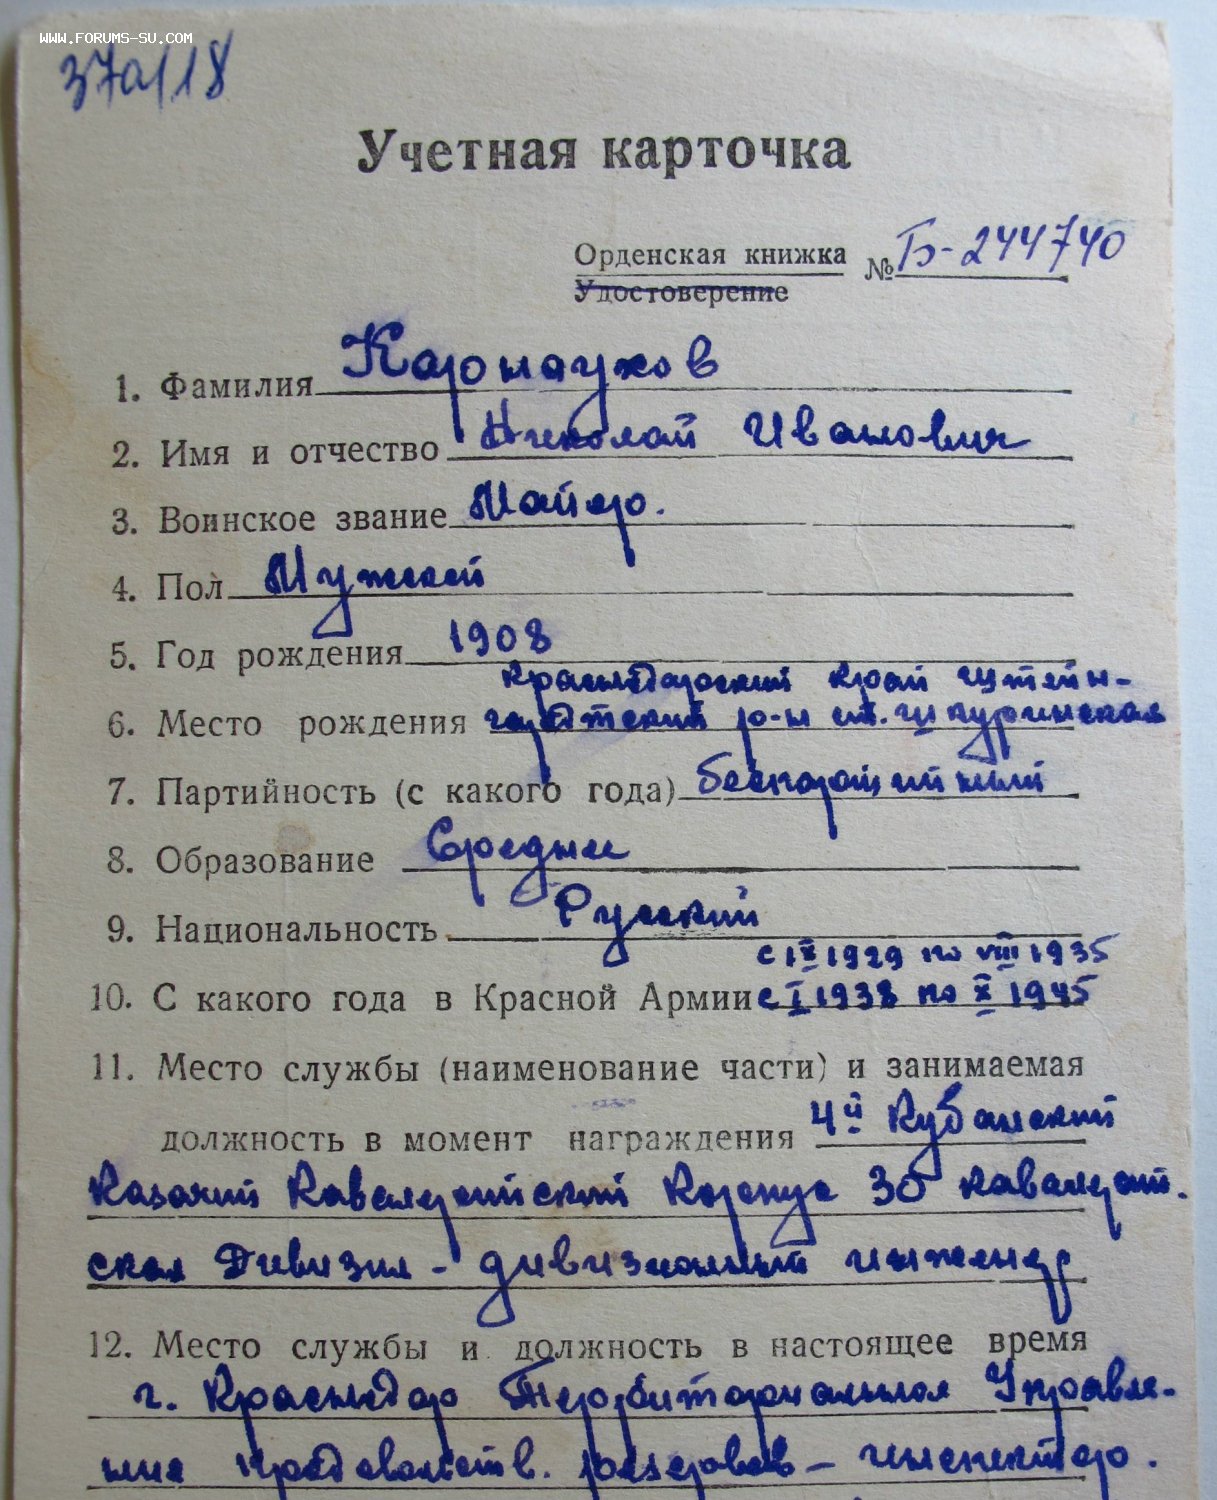 WWW.FORUMS-SU.COM
37а/18
Учетная карточка
Орденская книжка № Б-244740
Удостоверение
1. Фамилия Карнаухов
2. Имя и отчество Николай Иванович
3. Воинское звание Майор.
4. Пол Мужской
5. Год рождения 1908
Краснодарский край Штейн-
6. Место рождения гардтский р-н ст. Шкуринская
7. Партийность (с какого года) беспартийный
8. Образование Средние
9. Национальность Русский
с IX 1929 по VIII 1935
10. С какого года в Красной Армии с I 1938 по X 1945
11. Место службы (наименование части) и занимаемая
должность в момент награждения 4й Кубанский
Казачий Кавалерийский Корпус 30 кавалерий.
ская Дивизия - дивизионный инженер
12. Место службы и должность в настоящее время
г. Краснодар Территориальное Управле-
ние продовольств. резервов - инспектор.